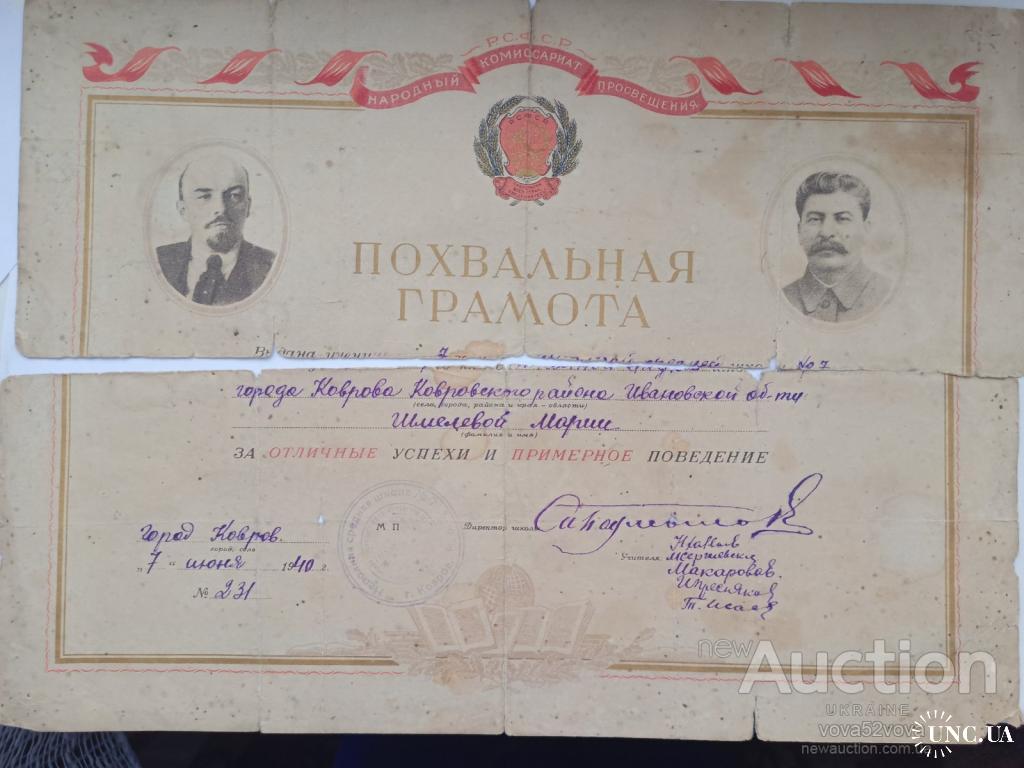 Р.С.Ф.С.Р.
НАРОДНЫЙ КОМИССАРИАТ ПРОСВЕЩЕНИЯ
РСФСР
ПОХВАЛЬНАЯ
ГРАМОТА
Выдана 7 №7
города Коврова Ковровского района Ивановской об-ти
(село, города, района и края - области)
Шмелевой Марии
(фамилия и имя)
ЗА ОТЛИЧНЫЕ УСПЕХИ И ПРИМЕРНОЕ ПОВЕДЕНИЕ
Город Ковров.
город, село
МП
Директор школы
"7" июня 1940 г.
Учителя
Макарова
Т. Исаев
№ 231
г. Ковров
newAuction
UKRAINE
vova52vova
newauction.com.ua
UNC.UA